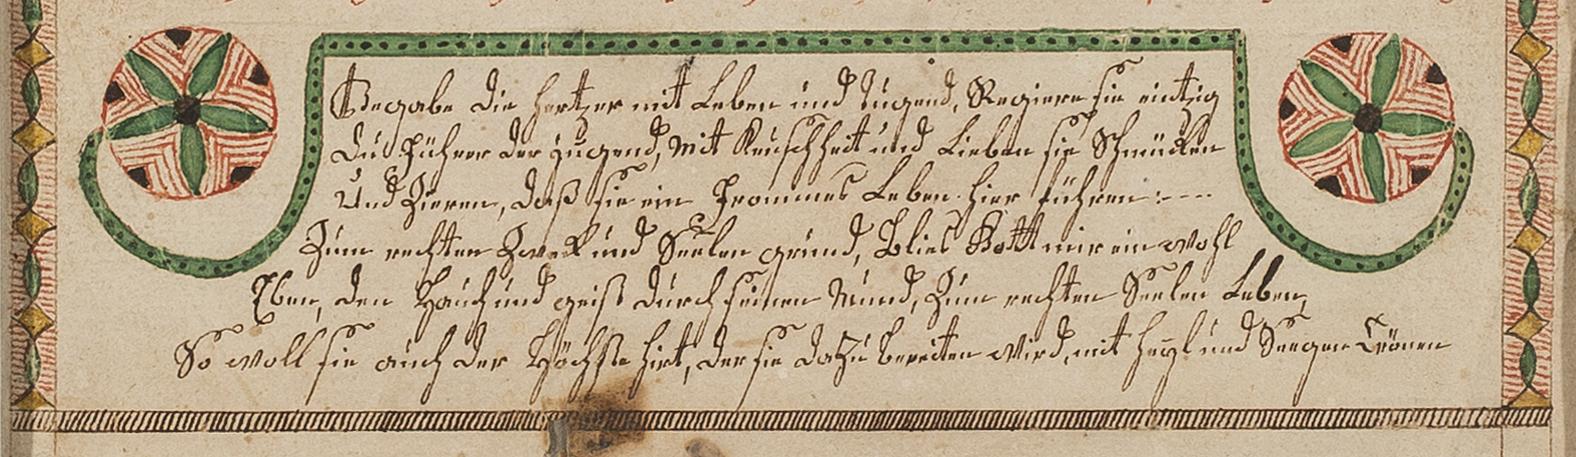 Begabe die hertzer mit Leben und Tugend, Regiere sie eintzig
Du Führer der jugend, Mit Keuschheit und Lieben sie Schmücken
Und Zieren, daß sie ein Frommes Leben hier führen:---
Zum rechten Zweck und Seelen grund, Blies Gott mir ein wohl
Eben, den Hauch und geist durch seinen Mund, Zum rechten Seelen Leben,
So woll sie auch der Höchste hirt, der sie dazu bereiten wird, mit heyl und Seegen Crönen